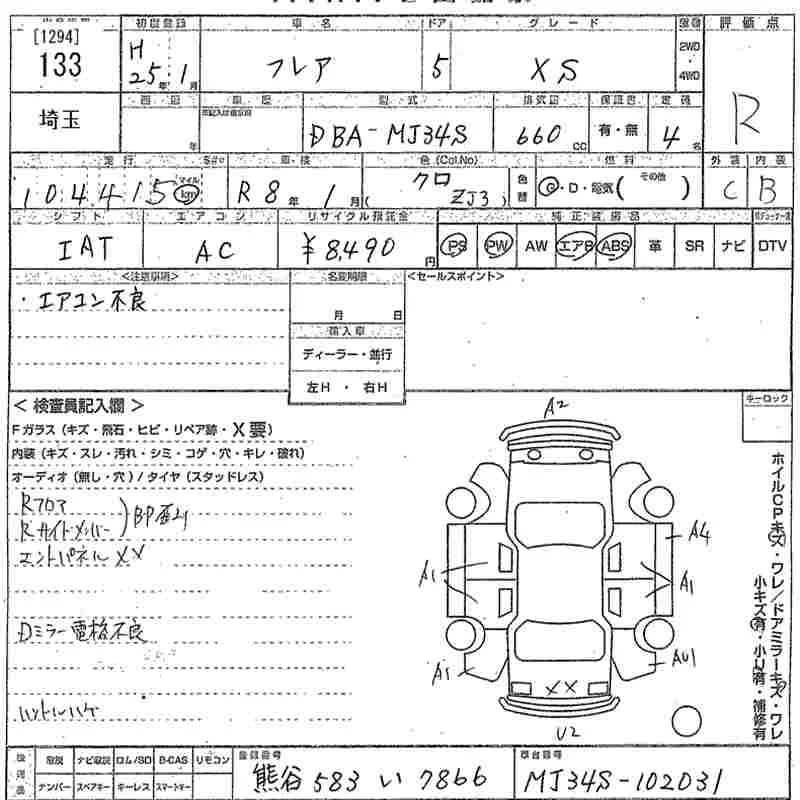 初度登録 車名 ドア グレード 評価点
[1294]
133 H25年1月 フレア 5 XS 2WD・4WD R
埼玉
車歴 型式 排気量 保証書 定員
年 DBA-MJ34S 660cc 有・無 4名
走行 車検 色(Col.No) 燃料 その他 外装 内装
104415 マイル km R8年1月 クロ (ZJ3) 色替 G・D・電気( ) C B
シフト エアコン リサイクル預託金 純正装備品
IAT AC ¥8,490円 PS PW AW エアB ABS 革 SR ナビ DTV
<注意事項> 名変期限 <セールスポイント>
・エアコン不良
月 日
輸入車
ディーラー・並行
左H・右H
<検査員記入欄> キーロック
Fガラス(キズ・飛石・ヒビ・リペア跡・X要)
内装(キズ・スレ・汚れ・シミ・コゲ・穴・キレ・破れ)
オーディオ(無し・穴)/タイヤ(スタッドレス)
Rフロア
Rサイドメンバー
エンドパネルXX
Dミラー電格不良
A2
A4
A1
A1
A1
AU1
XX
U2
ホイルCPキズ・ワレ/ドアミラーキズ・ワレ
小キズ有・小U有・補修有
取説 ナビ取説 ロム/SD B-CAS リモコン 登録番号 車台番号
ナンバー スペアキー キーレス スマートキー 熊谷 583 い 7866 MJ34S-102031